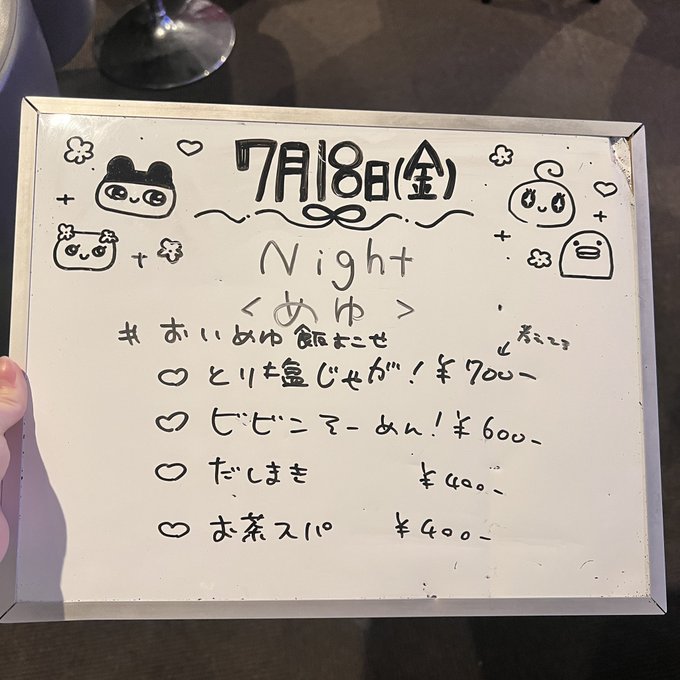 7月18日(金)
Night
<めゆ>
# おいめゆ飯よこせ
♡ とり塩じゃが! ¥700-
♡ ビビンそーめん! ¥600-
♡ だしまき ¥400-
♡ お茶スパ ¥400-